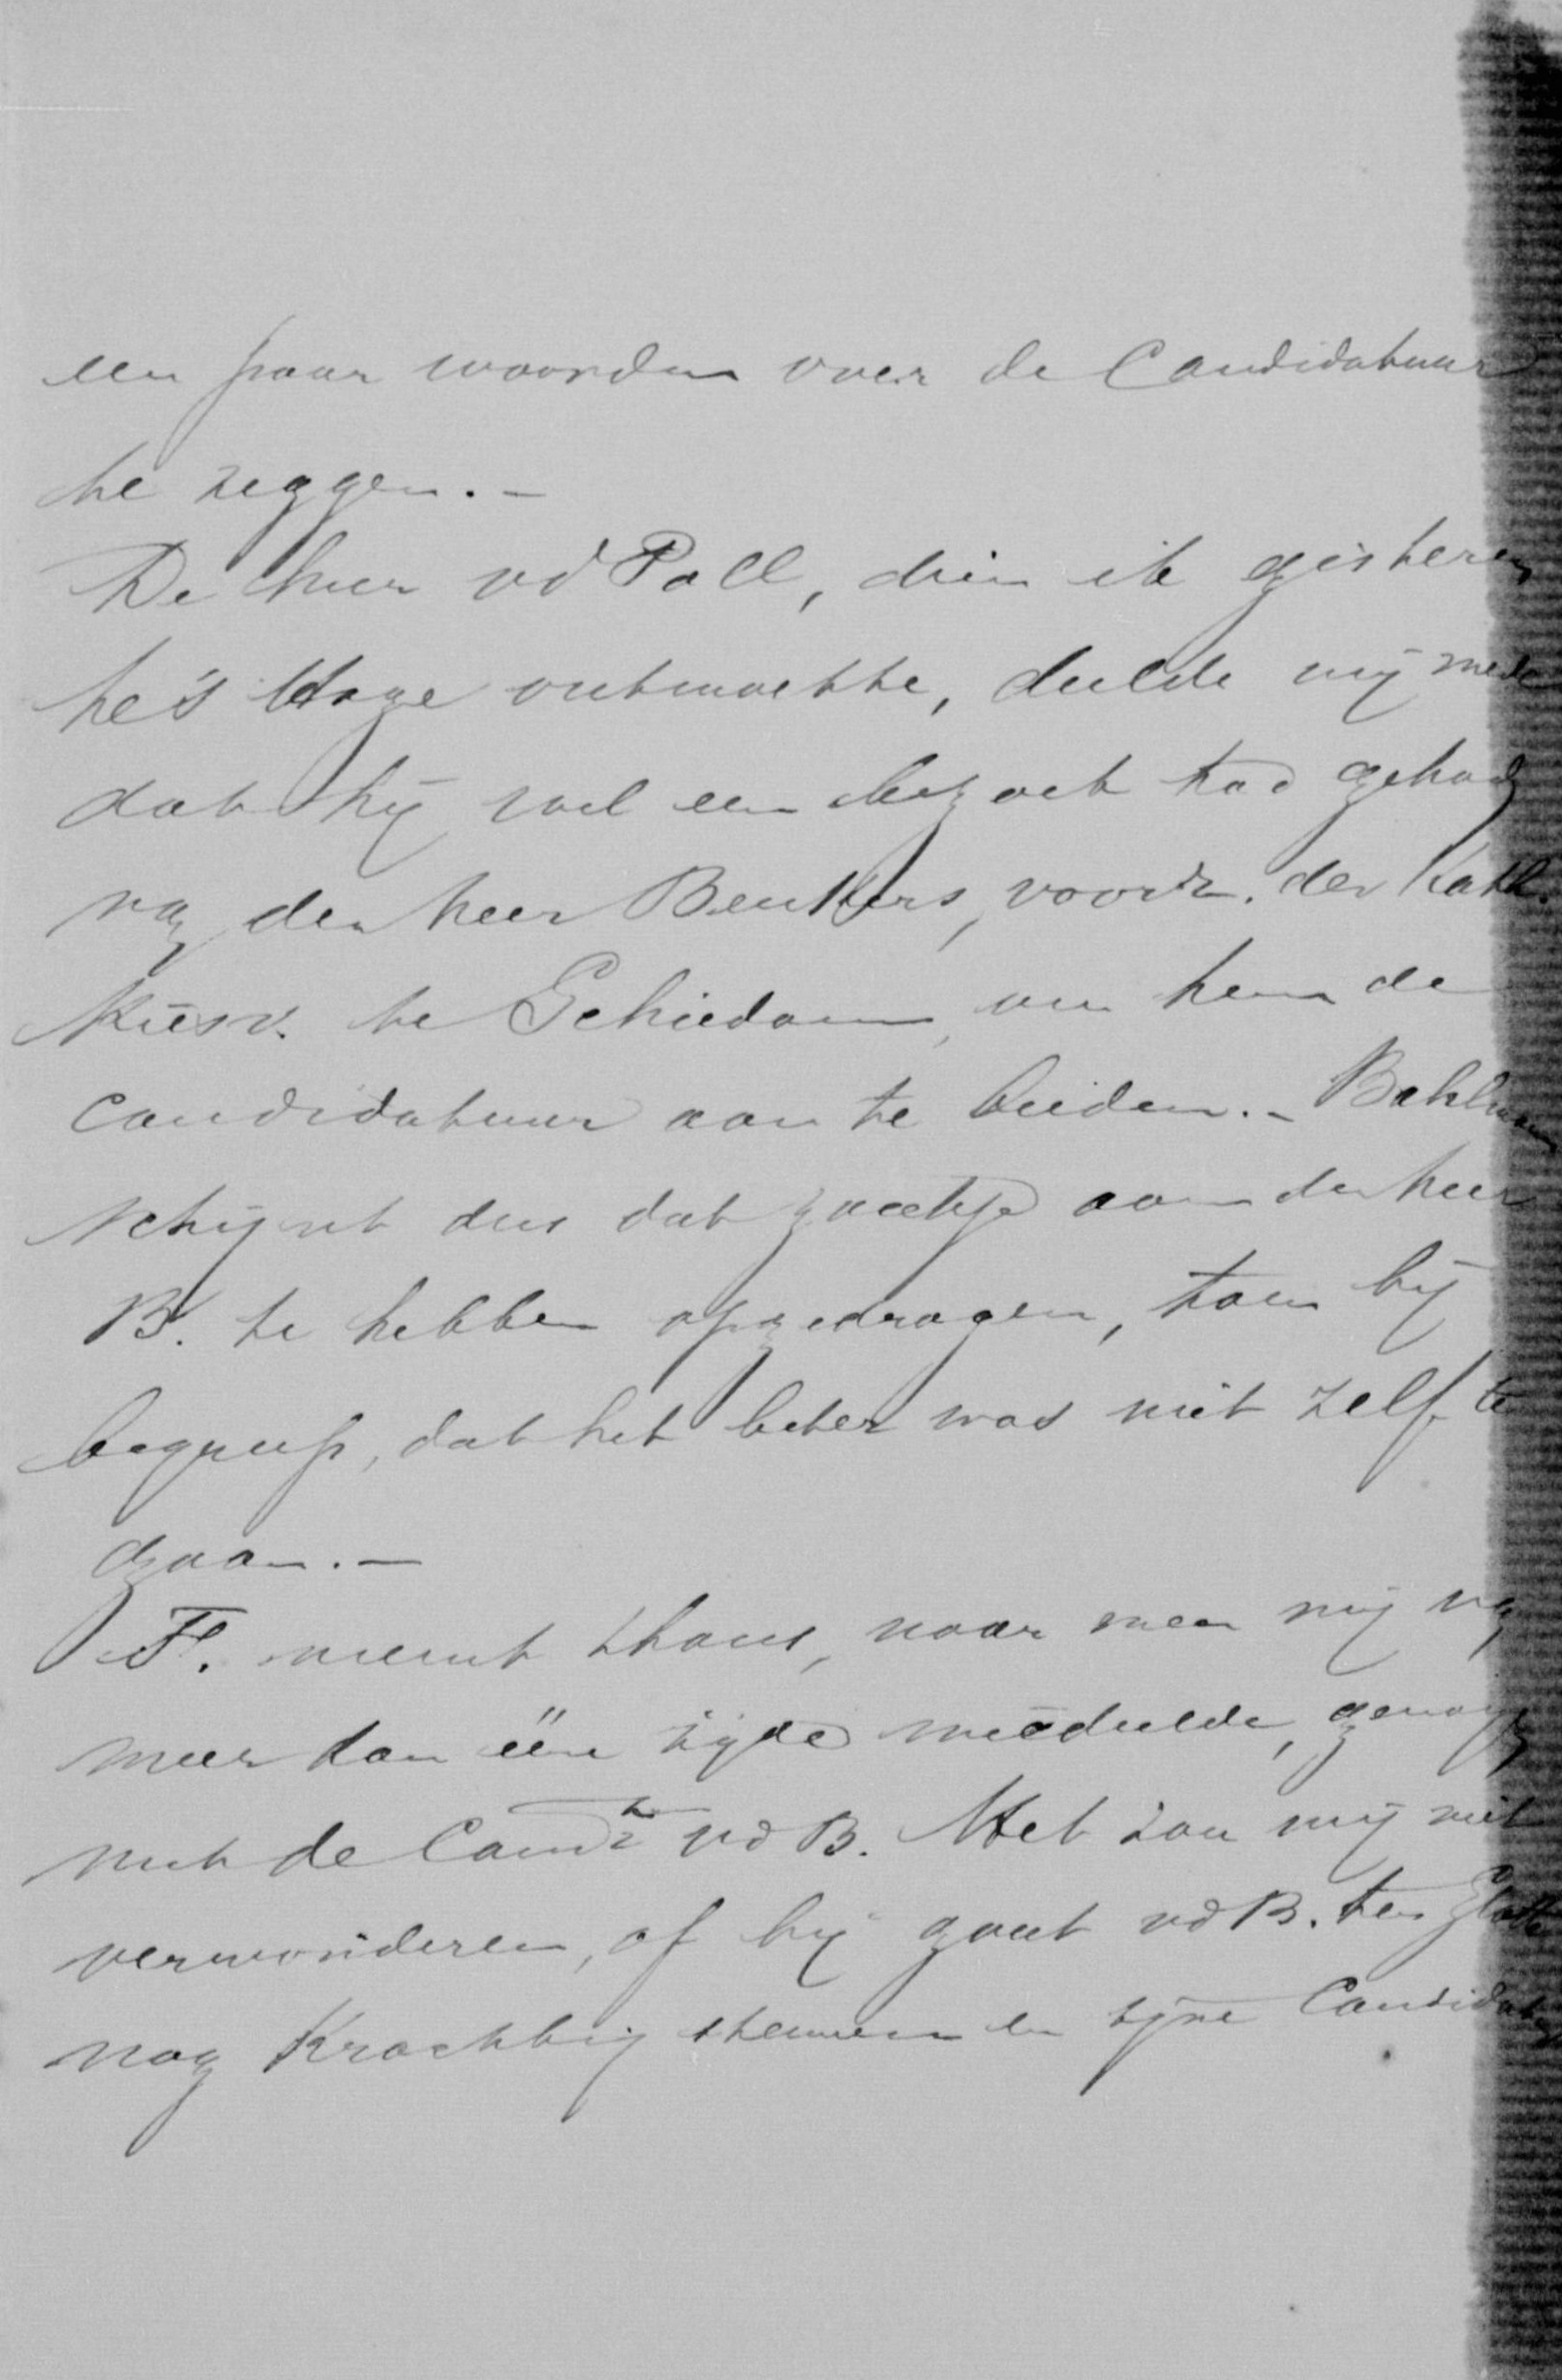 een paar woorden over de Candidatuur
te zeggen. -
De heer vd Poll, dien ik gisteren
te 's Hage ontmoette, deelde mij mede
dat hij wel een bezoek had gehad
van den heer Beukers, voorz. der Kath.
Kiesv. te Schiedam, om hem de
candidatuur aan te bieden. - Bahlmann
schijnt dus dat zaakje aan den heer
B. te hebben opgedragen, toen hij
begreep, dat het beter was niet zelf te
gaan. -
F. neemt thans, naar men mij van
meer dan ééne zijde mededeelde, genoegen
met de Cand.r vd B. Het zou mij niet
verwonderen, of hij gaat vd B. ten slotte
nog krachtig steunen en zijne Candidatuur